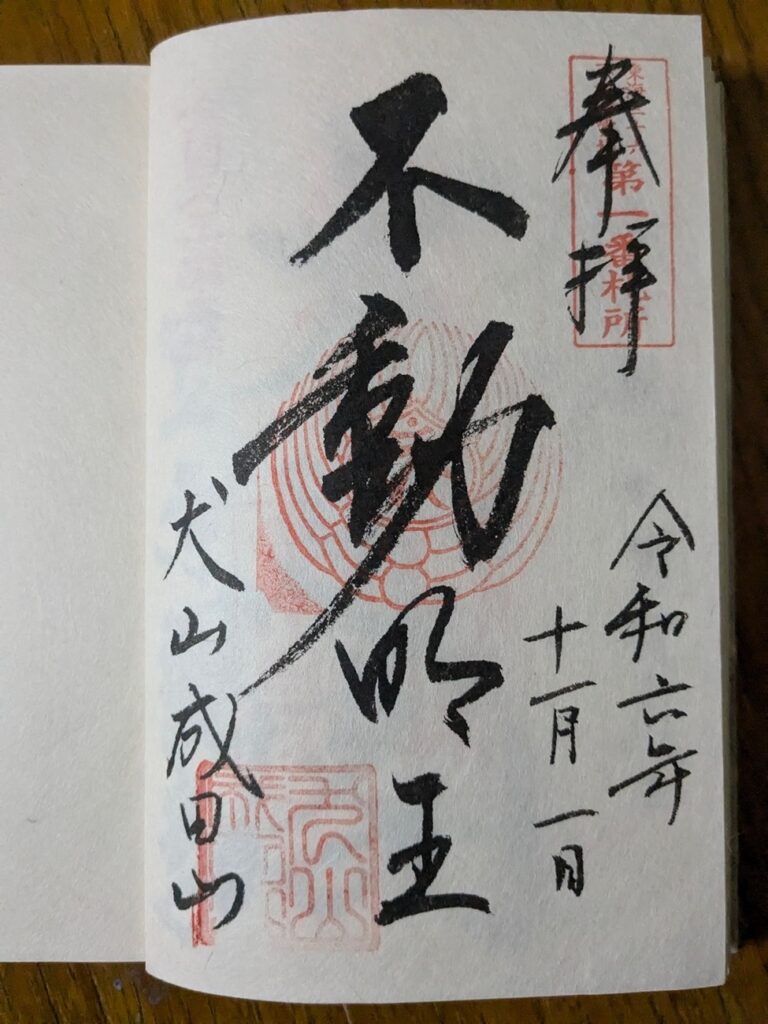 奉拝
第一番札所
令和六年
十一月一日
不動明王
犬山成田山